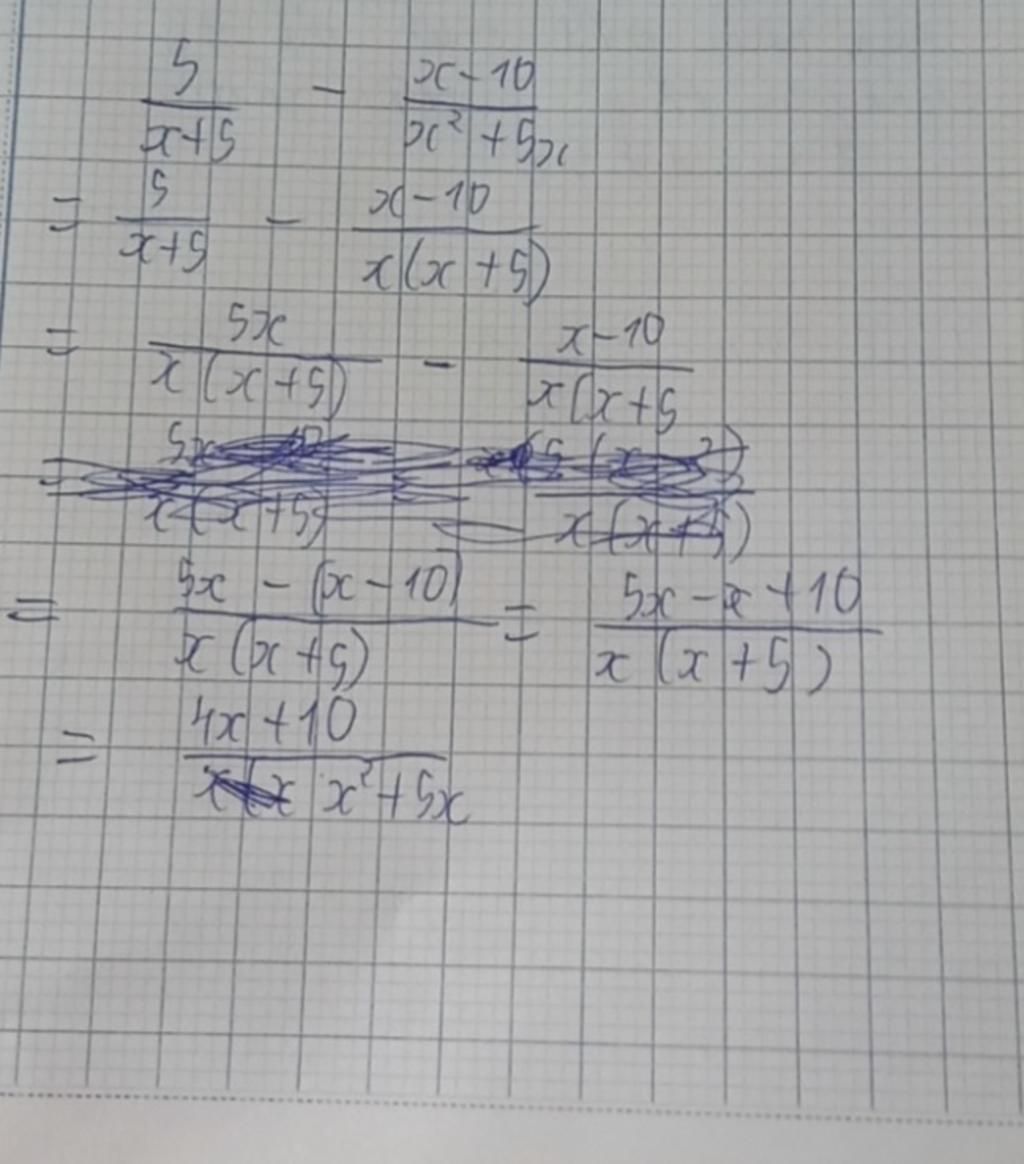 5/(x+5) - (x-10)/(x² + 5x)
= 5/(x+5) - (x-10)/(x(x+5))
= 5x/(x(x+5)) - (x-10)/(x(x+5
= (5x - (x-10))/(x(x+5)) = (5x - x + 10)/(x(x+5))
= (4x+10)/(x²+5x)